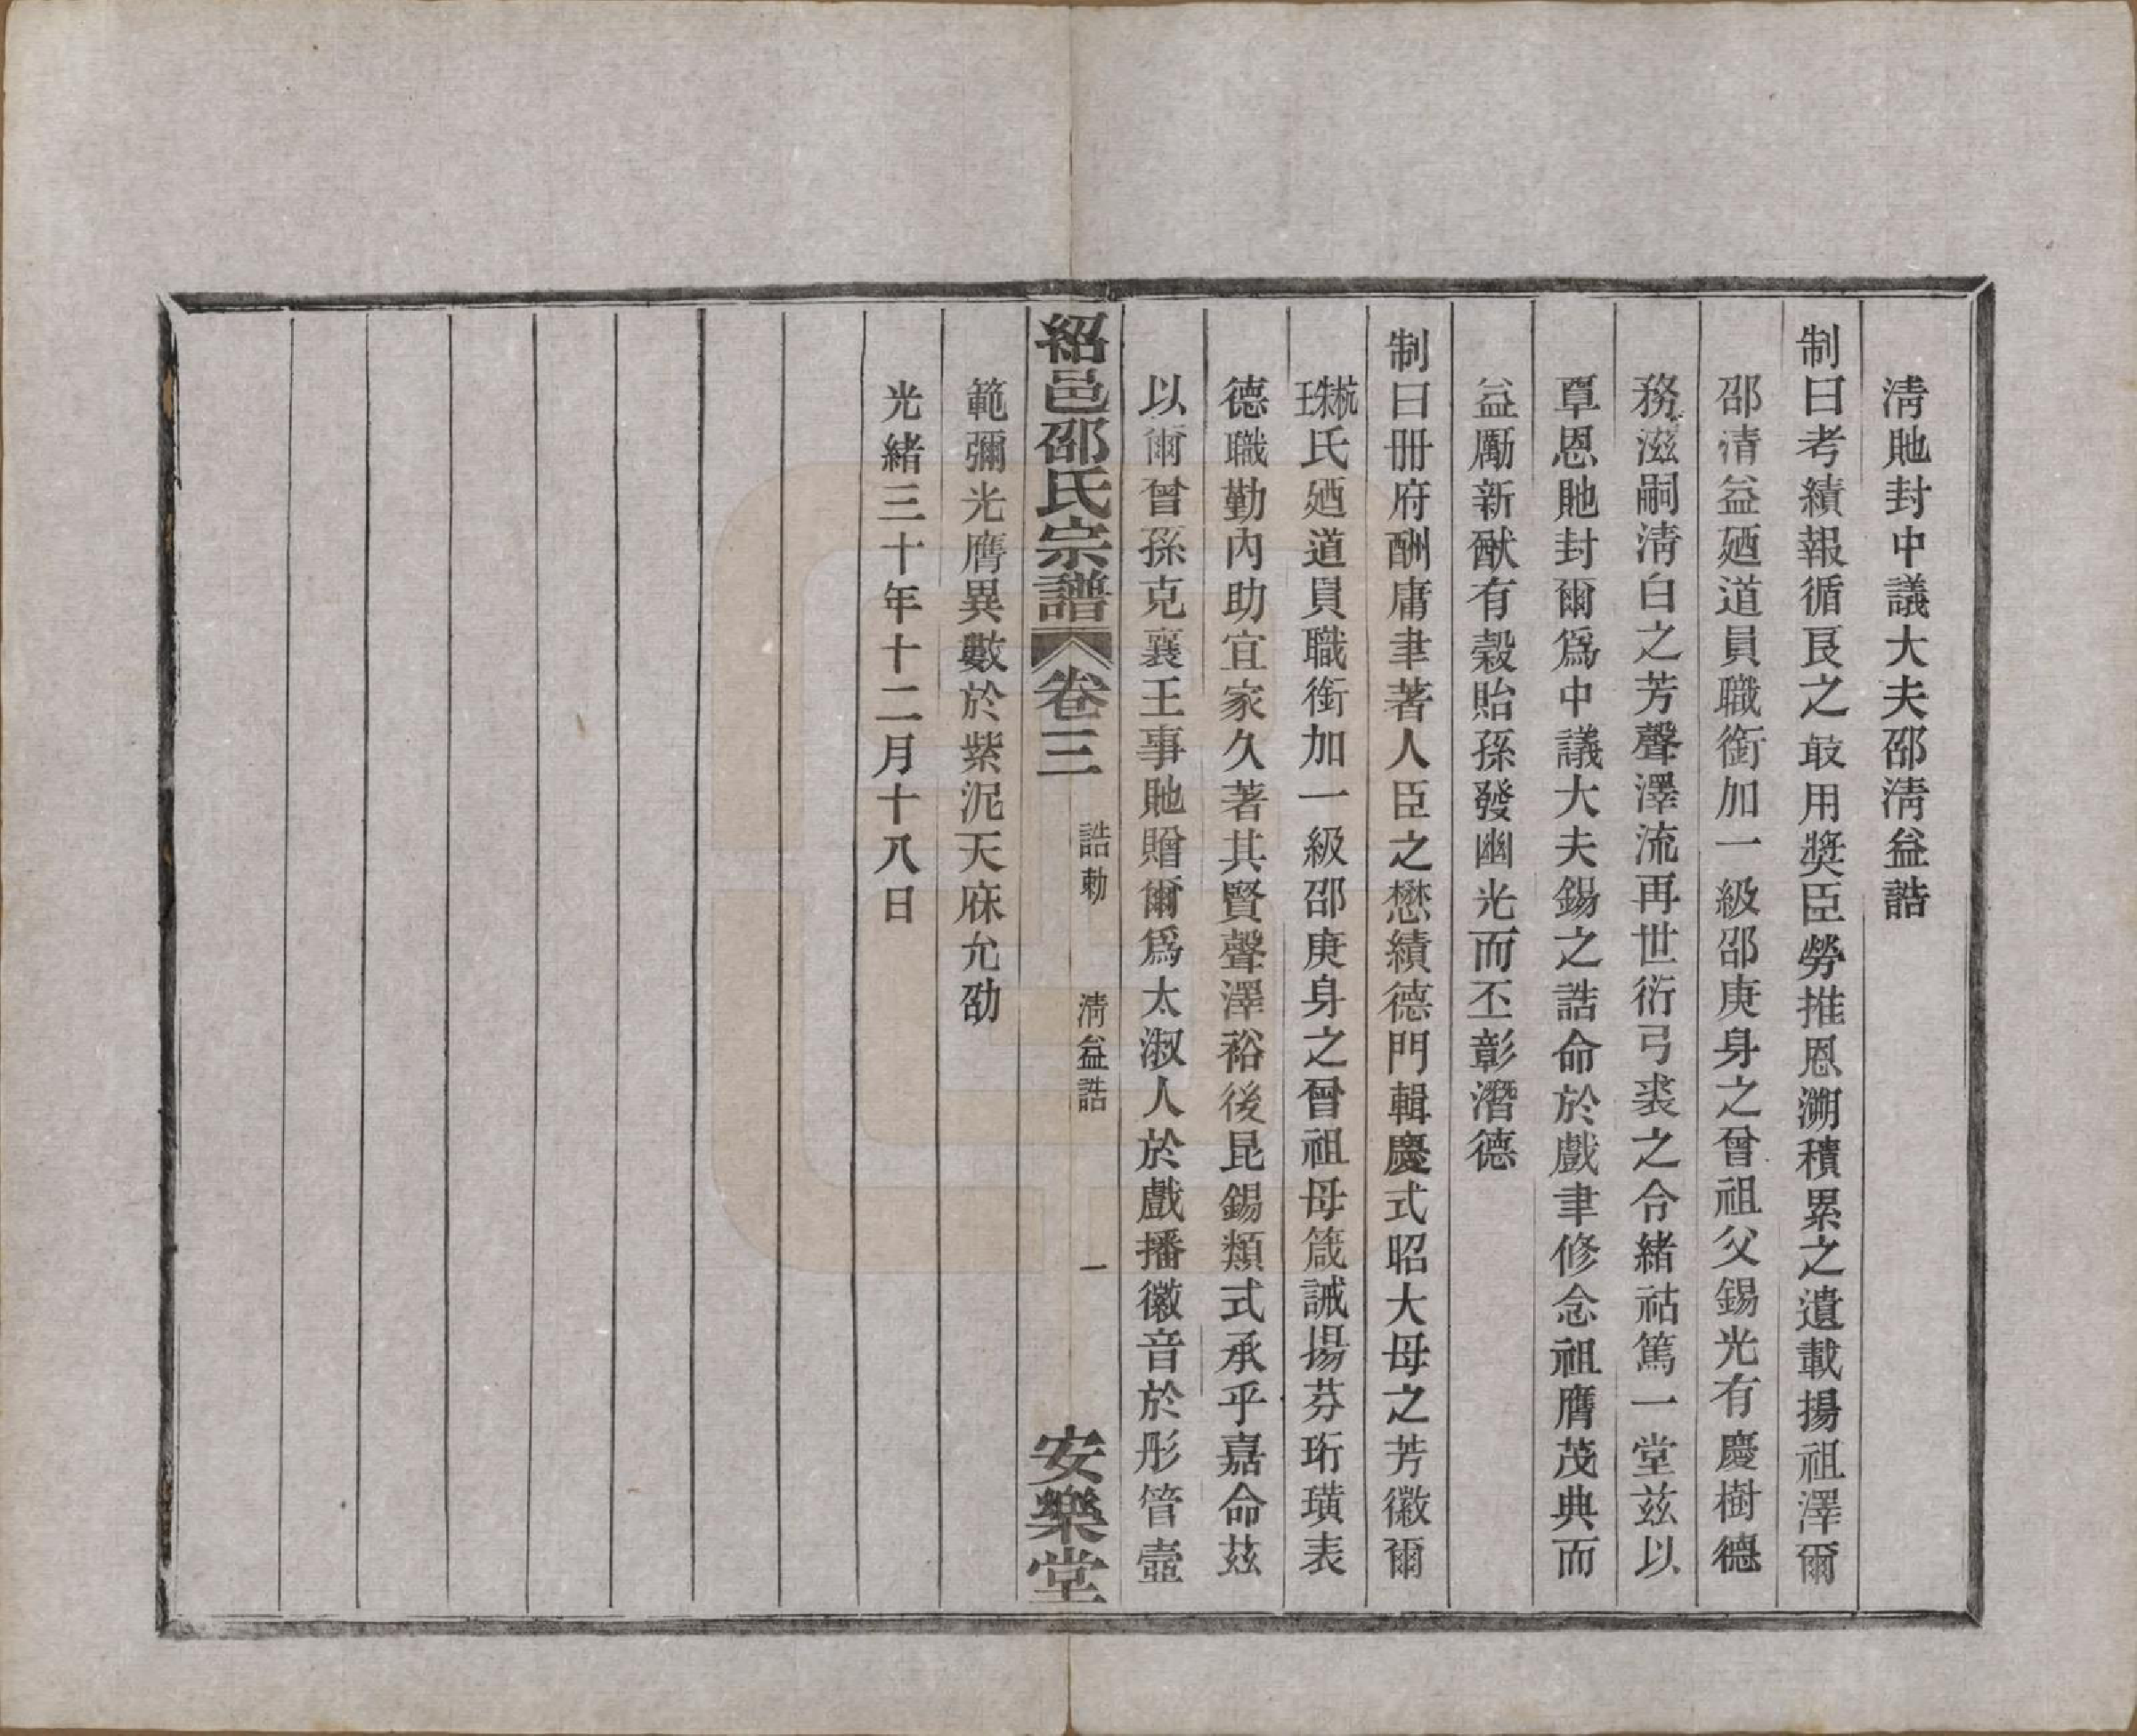 清貤封中議大夫邵淸益誥
制曰考績報循良之最用獎臣勞推恩溯積累之遺載揚祖澤爾
邵清益廼道員職銜加一級邵庚身之曾祖父錫光有慶樹德
務滋嗣淸白之芳聲澤流再世衍弓裘之令緒祜篤一堂茲以
覃恩貤封爾爲中議大夫錫之誥命於戲聿修念祖膺茂典而
益勵新猷有穀貽孫發幽光而丕彰潛德
制曰冊府酬庸聿著人臣之懋績德門輯慶式昭大母之芳徽爾
氏廼道員職銜加一級邵庚身之曾祖母箴誡揚芬珩璜表
德職勤內助宜家久著其賢聲澤裕後昆錫類式承乎嘉命茲
以爾曾孫克襄王事貤贈爾爲太淑人於戲播徽音於彤管壼
紹邑邵氏宗譜 卷三 誥勅 淸益誥 一 安樂堂
範彌光膺異數於紫泥天庥允劭
光緒三十年十二月十八日